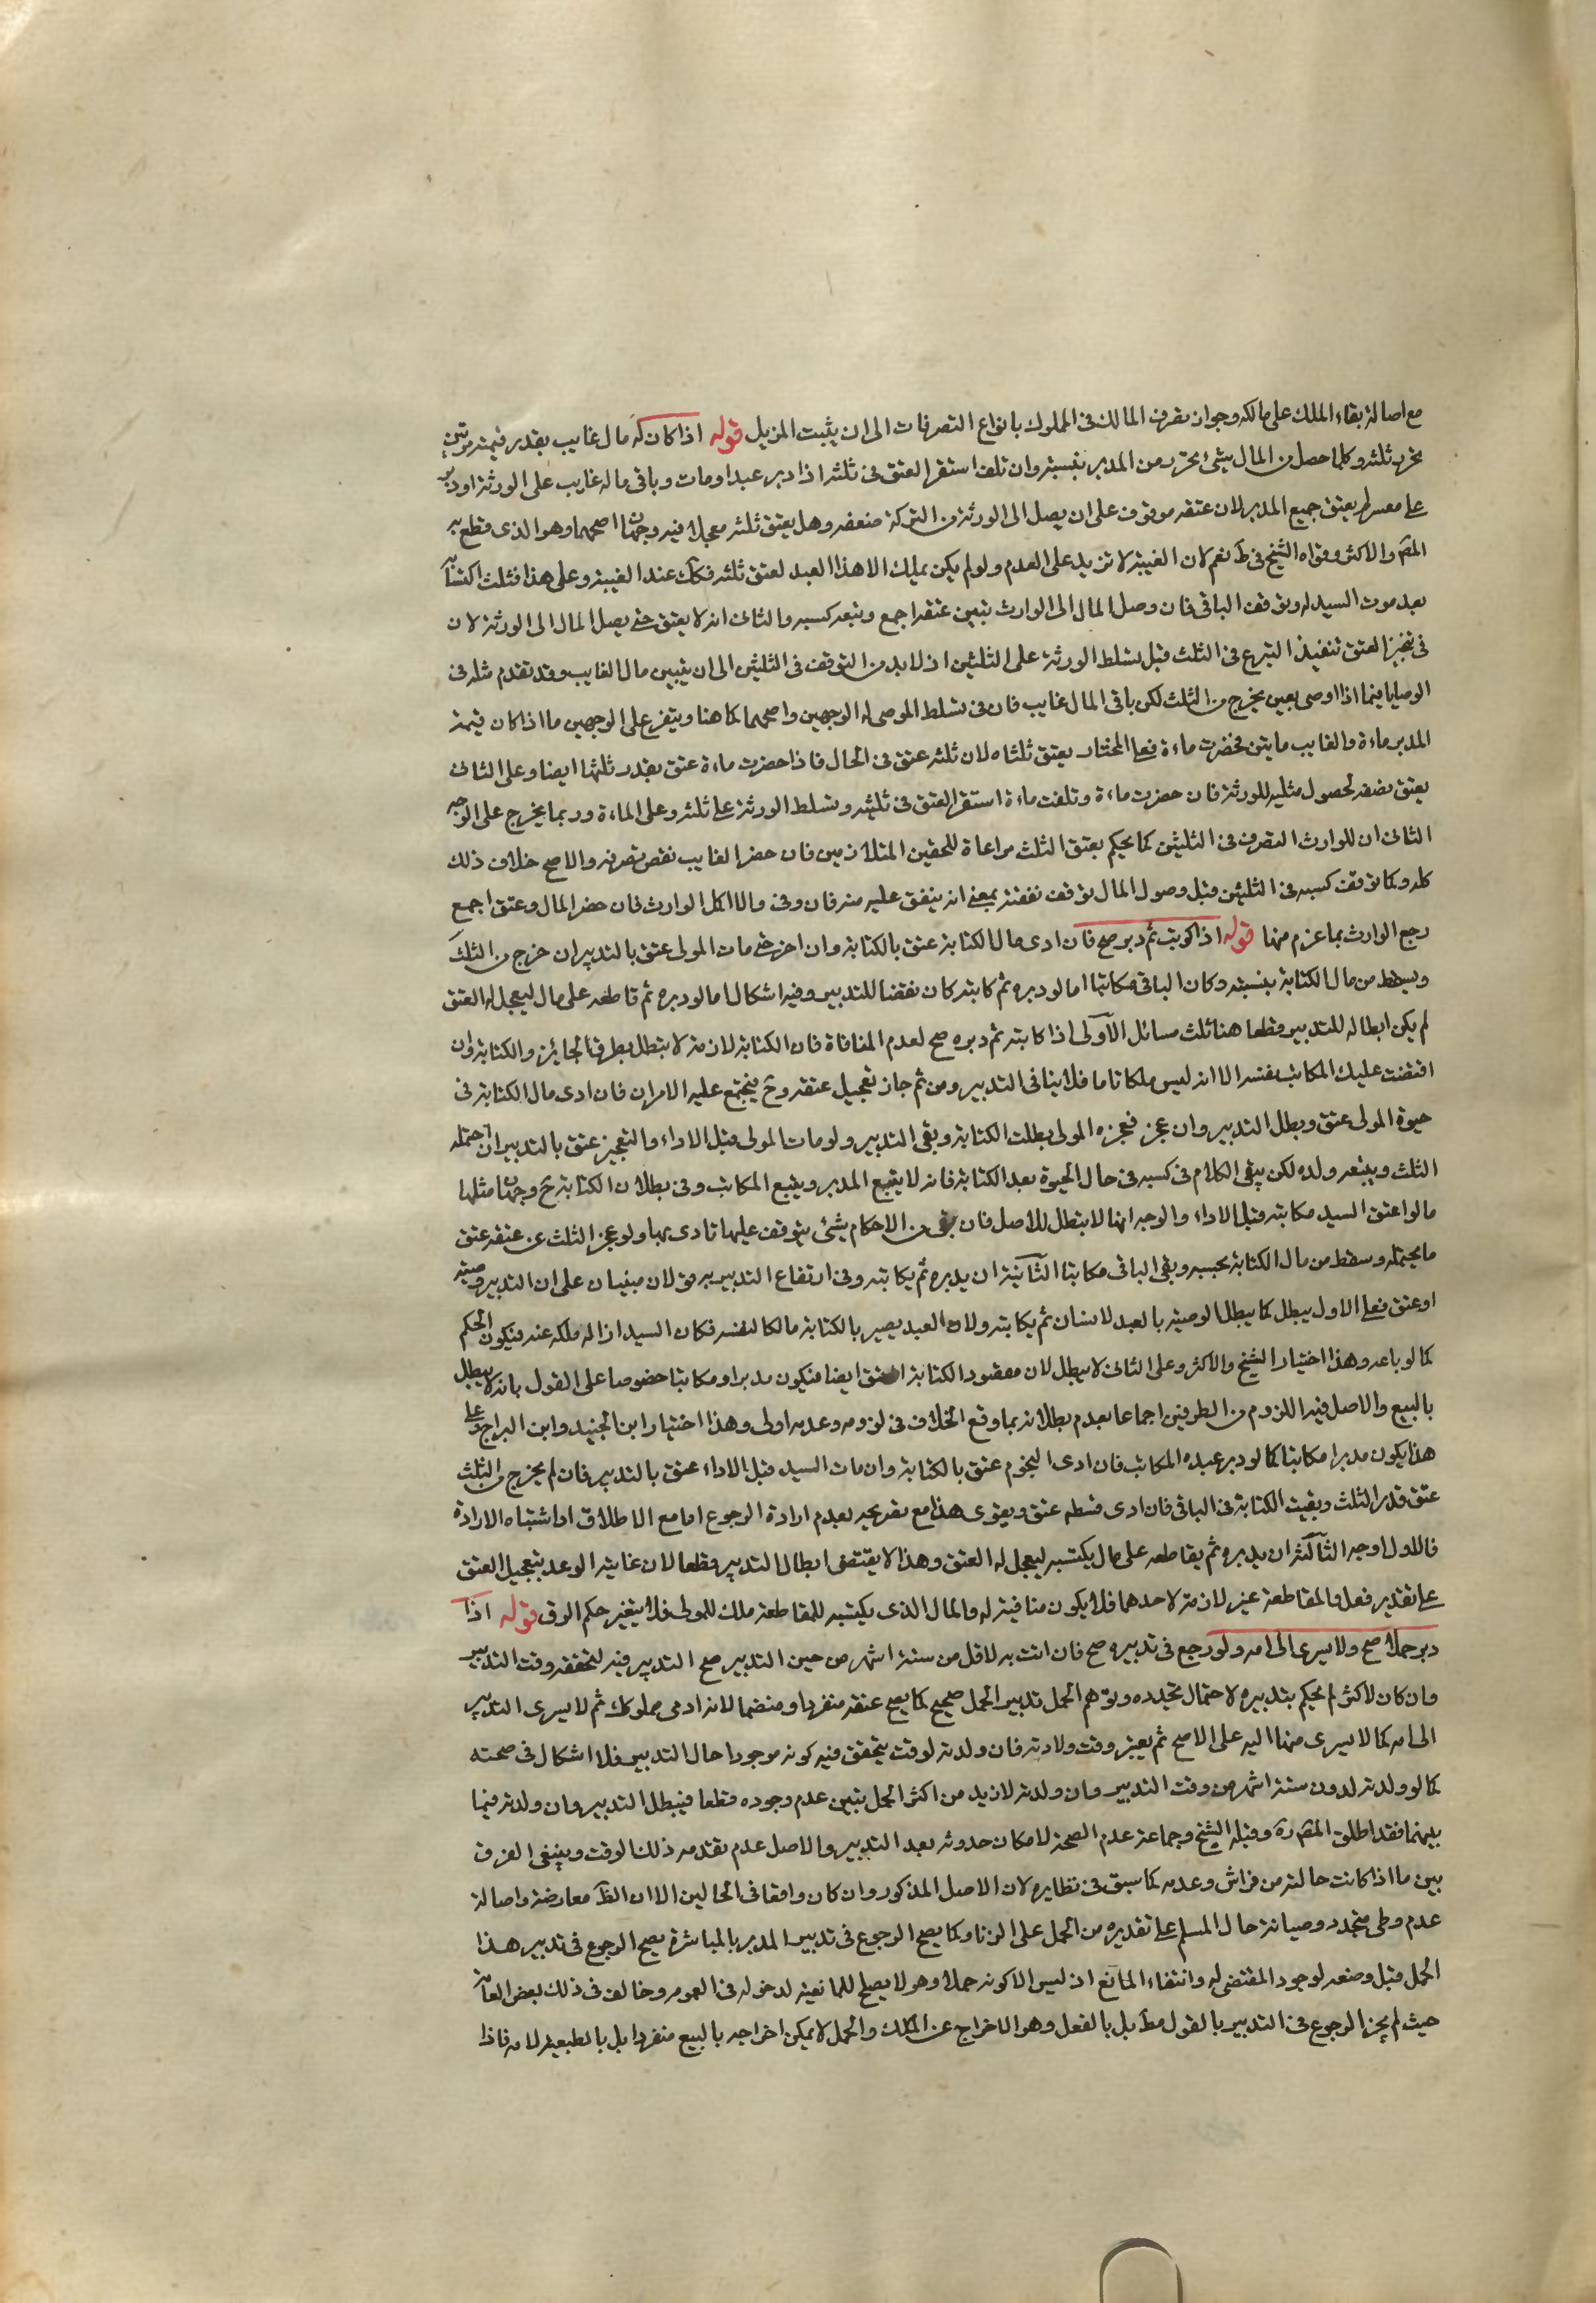 مع اصالة بقاء الملك على مالكه وجواز تصرف المالك فى المملوك بانواع التصرفات الى ان يثبت المزيل قوله اذا كان له مال غايب بقدر قيمته مرتين
تحرر ثلثه وكلما حصل من المال شئ تحرر من المدبر بنسبته وان تلف استقر العتق فى ثلثه اذا دبر عبدا ومات وباقى ماله غايب على الورثة او دين
على معسر لم يعتق جميع المدبر لان عتقه موقوف على ان يصل الى الورثة من التركة ضعفه وهل يعتق ثلثه معجلا فيه وجهان اصحهما وهو الذى قطع به
المص والاكثر وقواه الشيخ فى ط نعم لان الغيبة لا تزيد على العدم ولو لم يكن يملك الا هذا العبد لعتق ثلثه فكك عند الغيبة وعلى هذا فثلث اكتسابه
بعد موت السيد له ويوقف الباقى فان وصل المال الى الوارث تبين عتقه اجمع وتبعه كسبه والثانى انه لا يعتق حتى يصل المال الى الورثة لان
فى تنجيز العتق تنفيذ التبرع فى الثلث قبل تسلط الورثة على الثلثين اذ لا بد من التوقف فى الثلثين الى ان يتبين مال الغايب وقد تقدم مثله فى
الوصايا فيما اذا اوصى بعين يخرج من الثلث لكن باقى المال غايب فان فى تسلط الموصى له الوجهين واصحهما كما هنا ويتفرع على الوجهين ما اذا كان قيمة
المدبر ماءة والغايب مايتين فحضرت ماءة فعلى المختار يعتق ثلثاه لان ثلثه عتق فى الحال فاذا حضرت ماءة عتق بقدر ثلثها ايضا وعلى الثانى
يعتق نصفه لحصول مثليه للورثة فان حضرت ماءة وتلفت ماءة استقر العتق فى ثلثيه وتسلط الورثة على ثلثه وعلى الماءة وربما يخرج على الوجه
الثانى ان للوارث التصرف فى الثلثين كما يحكم بعتق الثلث مراعاة للحقين المتلازمين فان حضر الغايب نقض تصرفه والاصح خلاف ذلك
كله وكما توقف كسبه فى الثلثين قبل وصول المال توقف نفقته بمعنى انه ينفق عليه منه فان وفى والا اكمل الوارث فان حضر المال وعتق اجمع
رجع الوارث بما غرم منها قوله اذا كوتب ثم دبر صح فان ادى مال الكتابة عتق بالكتابة وان اخر حتى مات المولى عتق بالتدبير ان خرج من الثلث
وسقط من مال الكتابة بنسبته وكان الباقى مكاتبا اما لو دبره ثم كاتبه كان نقضا للتدبير وفيه اشكال اما لو دبره ثم قاطعه على مال ليعجل له العتق
لم يكن ابطالا للتدبير قطعا هنا ثلث مسائل الاولى اذا كاتبه ثم دبره صح لعدم المنافاة فان الكتابة لازمة لا تبطل بطرو الجايز والكتابة وان
اقتضت تمليك المكاتب نفسه الا انه ليس ملكا تاما فلا ينافى التدبير ومن ثم جاز تعجيل عتقه وح فيجتمع عليه الامران فان ادى مال الكتابة فى
حيوة المولى عتق وبطل التدبير وان عجز فعجزه المولى بطلت الكتابة وبقى التدبير ولو مات المولى قبل الاداء والتعجيز عتق بالتدبير ان احتمله
الثلث ويتبعه ولده لكن يبقى الكلام فى كسبه فى حال الحيوة بعد الكتابة فانه لا يتبع المدبر ويتبع المكاتب وفى بطلان الكتابة ح وجهان مثلهما
ما لو اعتق السيد مكاتبه قبل الاداء والوجه انها لا تبطل للاصل فان بقى من الاحكام شئ يتوقف عليها تادى بها ولو عجز الثلث عن عتقه عتق
ما يحتمله وسقط من مال الكتابة بحسبه وبقى الباقى مكاتبا الثانية ان يدبره ثم يكاتبه وفى ارتفاع التدبير به قولان مبنيان على ان التدبير وصية
او عتق فعلى الاول يبطل كما يبطل الوصية بالعبد لانسان ثم يكاتبه ولان العبد يصير بالكتابة مالكا لنفسه فكان السيد ازاله ملكه عنه فيكون الحكم
كما لو باعه وهذا اختيار الشيخ والاكثر وعلى الثانى لا يبطل لان مقصود الكتابة العتق ايضا فيكون مدبرا ومكاتبا خصوصا على القول بانه لا يبطل
بالبيع والاصل فيه اللزوم من الطرفين اجماعا بعدم بطلانه بما وقع الخلاف فى لزومه وعدمه اولى وهذا اختيار ابن الجنيد وابن البراج وعلى
هذا يكون مدبرا مكاتبا كما لو دبر عبده المكاتب فان ادى النجوم عتق بالكتابة وان مات السيد قبل الاداء عتق بالتدبير فان لم يخرج من الثلث
عتق قدر الثلث وبقيت الكتابة فى الباقى فان ادى قسطه عتق ويقوى هذا مع تصريحه بعدم ارادة الرجوع اما مع الاطلاق او اشتباه الارادة
فالاول اوجه الثالثة ان يدبره ثم يقاطعه على مال يكتسبه ليعجل له العتق وهذا لا يقتضى ابطال التدبير قطعا لان غايته الوعد بتعجيل العتق
على تقدير فعل والمقاطعة غير لازمة لاحدهما فلا يكون منافية له والمال الذى يكتسبه للمقاطعة ملك للمولى فلا يتغير حكم الرق قوله اذا
دبر حملا صح ولا يسرى الى امه ولو رجع فى تدبيره صح فان اتت به لاقل من ستة اشهر من حين التدبير صح التدبير فيه لتحققه وقت التدبير
وان كان لاكثر لم يحكم بتدبيره لاحتمال تجدده وتوهم الحمل تدبير الحمل صحيح كما يصح عتقه منفردا ومنضما لانه ادمى مملوك ثم لا يسرى التدبير
الى امه كما لا يسرى منها اليه على الاصح ثم يعتبر وقت ولادته فان ولدته لوقت يتحقق فيه كونه موجودا حال التدبير فلا اشكال فى صحته
كما لو ولدته لدون ستة اشهر من وقت التدبير وان ولدته لازيد من اكثر الحمل تبين عدم وجوده قطعا فيبطل التدبير وان ولدته فيما
بينهما فقد اطلق المص ره وقبله الشيخ وجماعة عدم الصحة لامكان حدوثه بعد التدبير والاصل عدم تقدمه ذلك الوقت وينبغى الفرق
بين ما اذا كانت خالية من فراش وعدمه كما سبق فى نظايره لان الاصل المذكور وان كان واقعا فى الحالين الا ان الظ معارضة واصالة
عدم وطى متجدد وصيانة حال المسلم على تقديره من الحمل على الزنا وكما يصح الرجوع فى تدبير المدبر بالمباشرة يصح الرجوع فى تدبير هذا
الحمل قبل وضعه لوجود المقتضى له وانتفاء المانع اذ ليس الا كونه حملا وهو لا يصلح للمانعية لدخوله فى العموم وخالف فى ذلك بعض العامة
حيث لم يجز الرجوع فى التدبير بالقول مط بل بالفعل وهو الاخراج عن الملك والحمل لا يمكن اخراجه بالبيع منفردا بل بالتبعية لامه فاذا